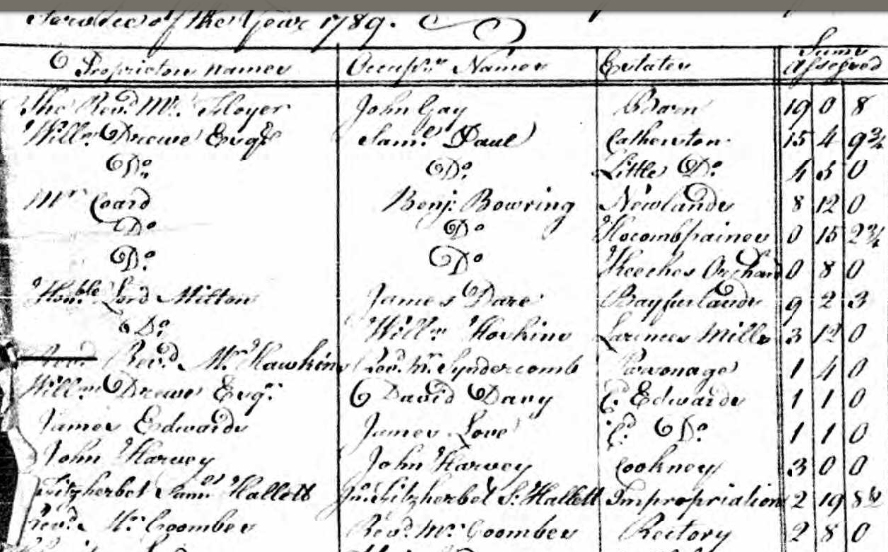 Service of the Year 1789.
Proprietors names Occupiers Names Estates Sums Assessed
The Revd. Mr. Floyer John Gay Barn 19 0 8
Willm. Drewe Esqr. Saml. Paul Catherston 15 4 9¾
Do. Do. Little Do. 4 5 0
Mr Coard Benj. Bowring Newlands 8 12 0
Do. Do. 0 15 2¾
Do. Do. Keeches Orchard 0 8 0
Honble Lord Milton James Dare 9 2 3
Do. Willm Hoskins Mills 3 12 0
Revd. Mr. Hawkins Revd. Mr. Syndercomb Parsonage 1 4 0
Willm Drewe Esqr. David Davy P. Edwards 1 1 0
James Edwards James Love P. Do. 1 1 0
John Harvey John Harvey Cookney 3 0 0
Fitzherbet Saml. Hallett Jno. Fitzherbet S. Hallett Impropriation 2 19 8½
Revd. Mr. Coombes Revd. Mr. Coombes Rectory 2 8 0